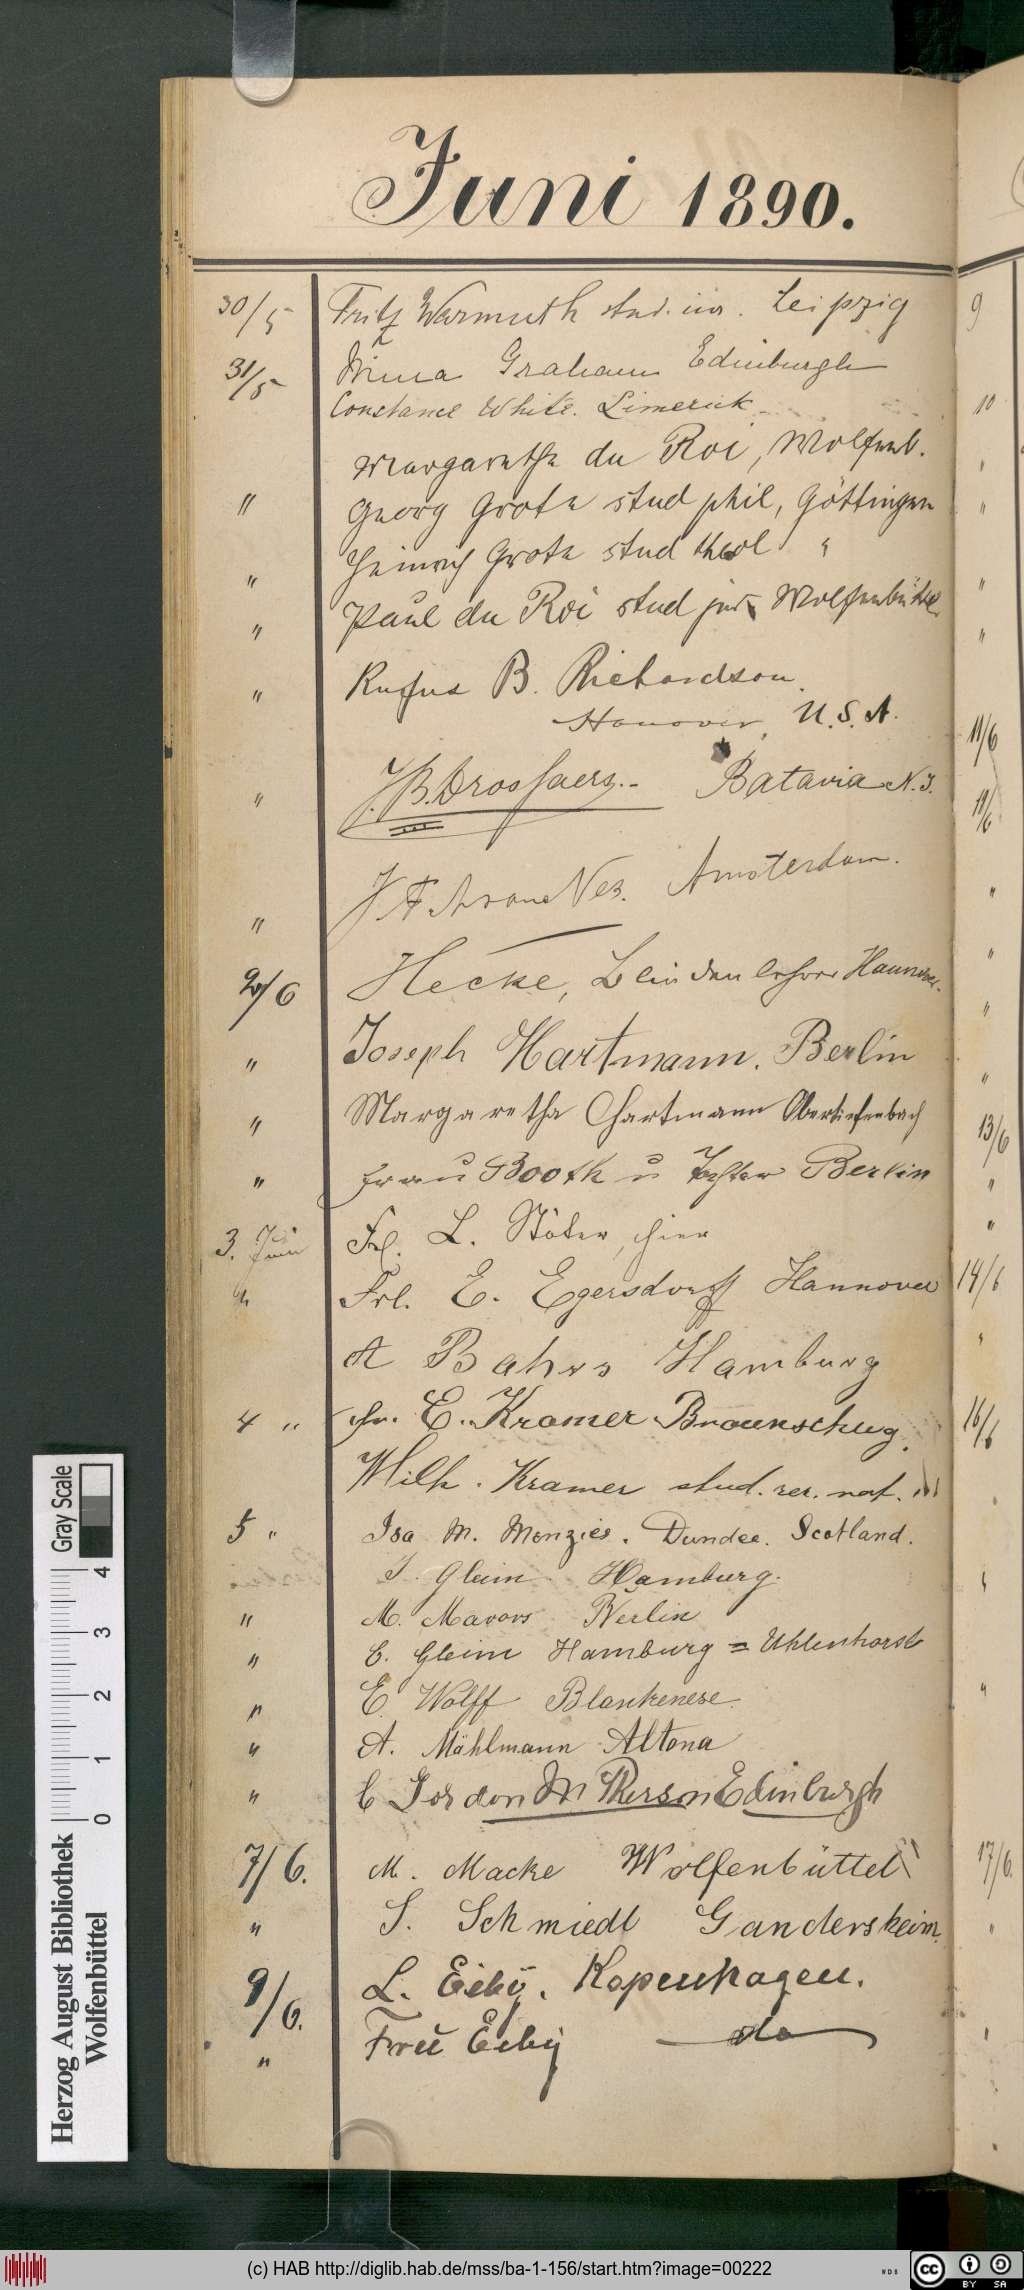 Juni 1890.
30/5 Fritz Warmuth stud. iur. Leipzig
31/5 Mina Graham Edinburgh
Constance White. Limerick
Margarethe du Roi, Wolfenb.
" Georg Grote stud phil, Göttingen
" Heinrich Grote stud theol "
" Paul du Roi stud jur Wolfenbüttel
" Rufus B. Richardson
Hanover, U.S.A.
" J.B. Drossaers. Batavia N.I.
" Amsterdam.
2/6 Hecke, Blindenlehrer Hannover.
" Joseph Hartmann. Berlin
" Margaretha Hartmann Obertiefenbach
" Frau Booth u Tochter Berlin
3. Juni Frl. L. Stöter, hier
" Frl. E. Egersdorff Hannover
A Bahrs Hamburg
4 " Fr. E. Kramer Braunschwg.
Wilh. Kramer stud. rer. nat. "
5 " Isa M. Menzies. Dundee. Scotland.
J. Gleim Hamburg.
" M. Mavors Berlin
" C. Gleim Hamburg = Uhlenhorst
" E. Wolff Blankenese.
" A. Mählmann Altona
" C Gordon McPherson Edinburgh
7/6. M. Macke Wolfenbüttel
" S. Schmiedt Gandersheim.
9/6. L. Eiby. Kopenhagen.
" Fru Eiby do
9
10
"
"
"
"
11/6
11/6
"
"
"
"
13/6
"
"
14/6
"
16/6
"
"
17/6.
"
"
Gray Scale
0 1 2 3 4
Herzog August Bibliothek
Wolfenbüttel
(c) HAB http://diglib.hab.de/mss/ba-1-156/start.htm?image=00222
WDB
cc BY SA